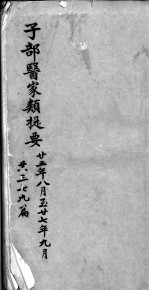 子部醫家類提要
廿三年八月至廿七年九月
共三七九篇